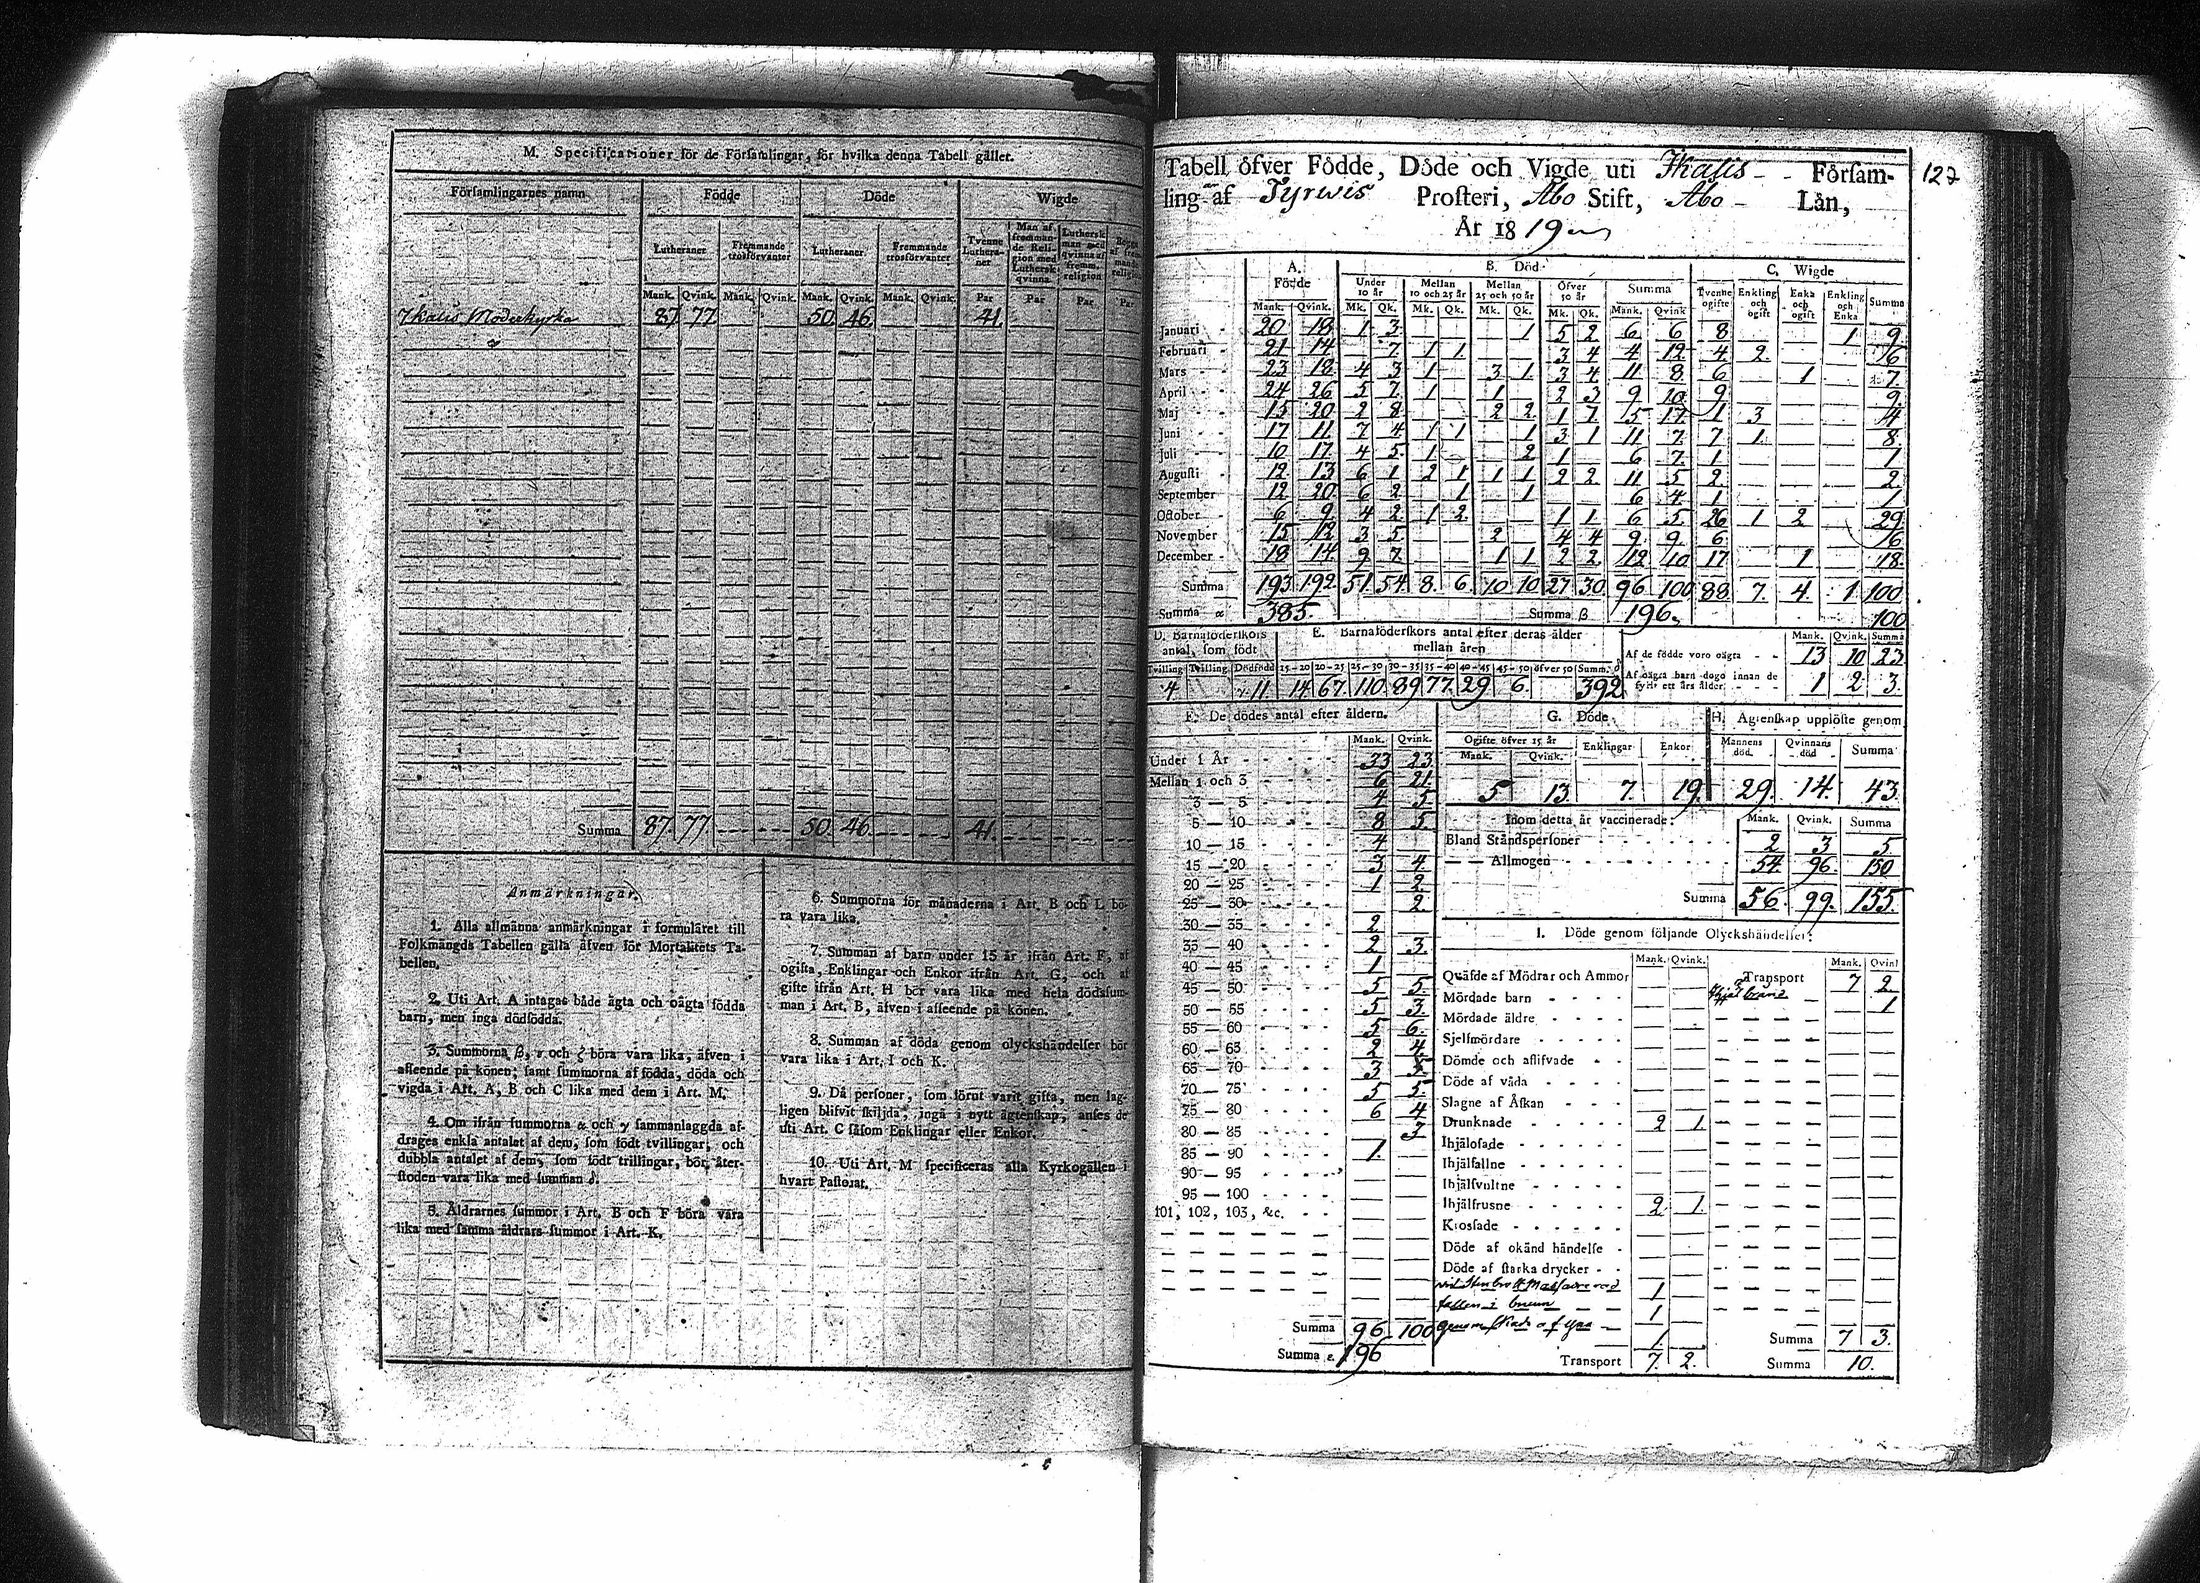 M. Specificationer för de Församlingar, för hvilka denna Tabell gäller.
Församlingarnes namn Födde Döde Wigde
Lutheraner Fremmande trosförvanter Lutheraner Fremmande trosförvanter Tvenne Lutheraner Man af fremmande Religion med Luthersk qvinna Luthersk man med qvinna af fremm. religion
Mank. Qvink. Mank. Qvink. Mank. Qvink. Mank. Qvink. Par Par Par Par
Ikalis Moderkyrka 87 77 50 46 41
Summa 87 77 50 46 41
Anmärkningar.
1. Alla allmänna anmärkningar i formuläret till
Folkmängds Tabellen gälla äfven för Mortalitets Ta-
bellen.
2. Uti Art. A intagas både ägta och oägta födda
barn, men inga dödfödda.
3. Summorna β, ε och ζ böra vara lika, äfven i
afseende på könen; samt summorna af födda, döda och
vigda i Art. A, B och C lika med dem i Art. M.
4. Om ifrån summorna α och γ sammanlaggda af-
drages enkla antalet af dem, som födt tvillingar, och
dubbla antalet af dem, som födt trillingar, bör åter-
stoden vara lika med summan δ.
5. Åldrarnes summor i Art. B och F böra vara
lika med samma åldrars summor i Art. K.
6. Summorna för månaderna i Art. B och L bö-
ra vara lika.
7. Summan af barn under 15 år ifrån Art. F, af
ogifta, Enklingar och Enkor ifrån Art. G, och af
gifte ifrån Art. H bör vara lika med hela dödssum-
man i Art. B, äfven i afseende på könen.
8. Summan af döda genom olyckshändelser bör
vara lika i Art. I och K.
9. Då personer, som förut varit gifta, men lag-
ligen blifvit skiljda, ingå i nytt ägtenskap, anses de
uti Art. C såsom Enklingar eller Enkor.
10. Uti Art. M specificeras alla Kyrkogällen i
hvart Pastorat.
127
Tabell öfver Födde, Döde och Vigde uti Ikalis Församling
af Tyrvis Prosteri, Åbo Stift, Åbo Län,
År 1819
A. Födde B. Död C. Wigde
Under 10 år Mellan 10 och 25 år Mellan 25 och 50 år Öfver 50 år Summa Tvenne ogifte Enkling och ogift Enka och ogift Enkling och Enka Summa
Mank. Qvink. Mk. Qk. Mk. Qk. Mk. Qk. Mk. Qk. Mank. Qvink
Januari 20 18 1 3 1 5 2 6 6 8 1 9
Februari 21 14 7 1 1 3 4 4 12 4 2 6
Mars 23 18 4 3 1 3 1 3 4 11 8 6 1 7
April 24 26 5 7 1 1 2 3 9 10 9 9
Maj 15 20 2 8 2 2 1 7 5 17 1 3 4
Juni 17 11 7 4 1 1 1 3 1 11 7 7 1 8
Juli 10 17 4 5 1 2 1 6 7 1 1
Augusti 12 13 6 1 2 1 1 1 2 2 11 5 2 2
September 12 20 6 2 1 1 6 4 1 1
October 6 9 4 2 1 2 1 1 6 5 26 1 2 29
November 15 12 3 5 2 4 4 9 9 6 6
December 18 14 9 7 1 1 2 2 12 10 17 1 18
Summa 193 192 51 54 8 6 10 10 27 30 96 100 88 7 4 1 100
Summa α 385 Summa β 196 100
D. Barnaföderskors antal, som födt E. Barnaföderskors antal efter deras ålder mellan åren
Mank. Qvink. Summa
Af de födde voro oägta 13 10 23
Tvilling Trilling Dödfödd 15-20 20-25 25-30 30-35 35-40 40-45 45-50 öfver 50 Summ. δ
4 11 14 67 110 89 77 29 6 392
Af oägta barn dogo innan de fyllt ett års ålder 1 2 3
F. De dödes antal efter åldern.
Mank. Qvink.
Under 1 År 33 23
Mellan 1 och 3 6 21
3 — 5 4 5
5 — 10 8 5
10 — 15 4
15 — 20 3 4
20 — 25 1 2
25 — 30 2
30 — 35 2
35 — 40 2 3
40 — 45 1
45 — 50 5 5
50 — 55 5 3
55 — 60 5 6
60 — 65 2 4
65 — 70 3 5
70 — 75 5 5
75 — 80 6 4
80 — 85 3
85 — 90 1
90 — 95
95 — 100
101, 102, 103, &c.
Summa 96 100
Summa ε 196
G. Döde H. Ägtenskap upplöste genom
Ogifte öfver 15 år Enklingar Enkor Mannens död Qvinnans död Summa
Mank. Qvink.
5 13 7 19 29 14 43
Inom detta år vaccinerade: Mank. Qvink. Summa
Bland Ståndspersoner 2 3 5
— — Allmogen 54 96 150
Summa 56 99 155
I. Döde genom följande Olyckshändelser:
Mank. Qvink. Mank. Qvink
Qväfde af Mödrar och Ammor Transport 7 2
Mördade barn 1
Mördade äldre
Sjelfmördare
Dömde och aflifvade
Döde af våda
Slagne af Åskan
Drunknade 2 1
Ihjälosade
Ihjälfallne
Ihjälsvultne
Ihjälfrusne 2 1
Krossade
Döde af okänd händelse
Döde af starka drycker
1
fallen i 1
genom skada af 1 Summa 7 3
Transport 7 2 Summa 10